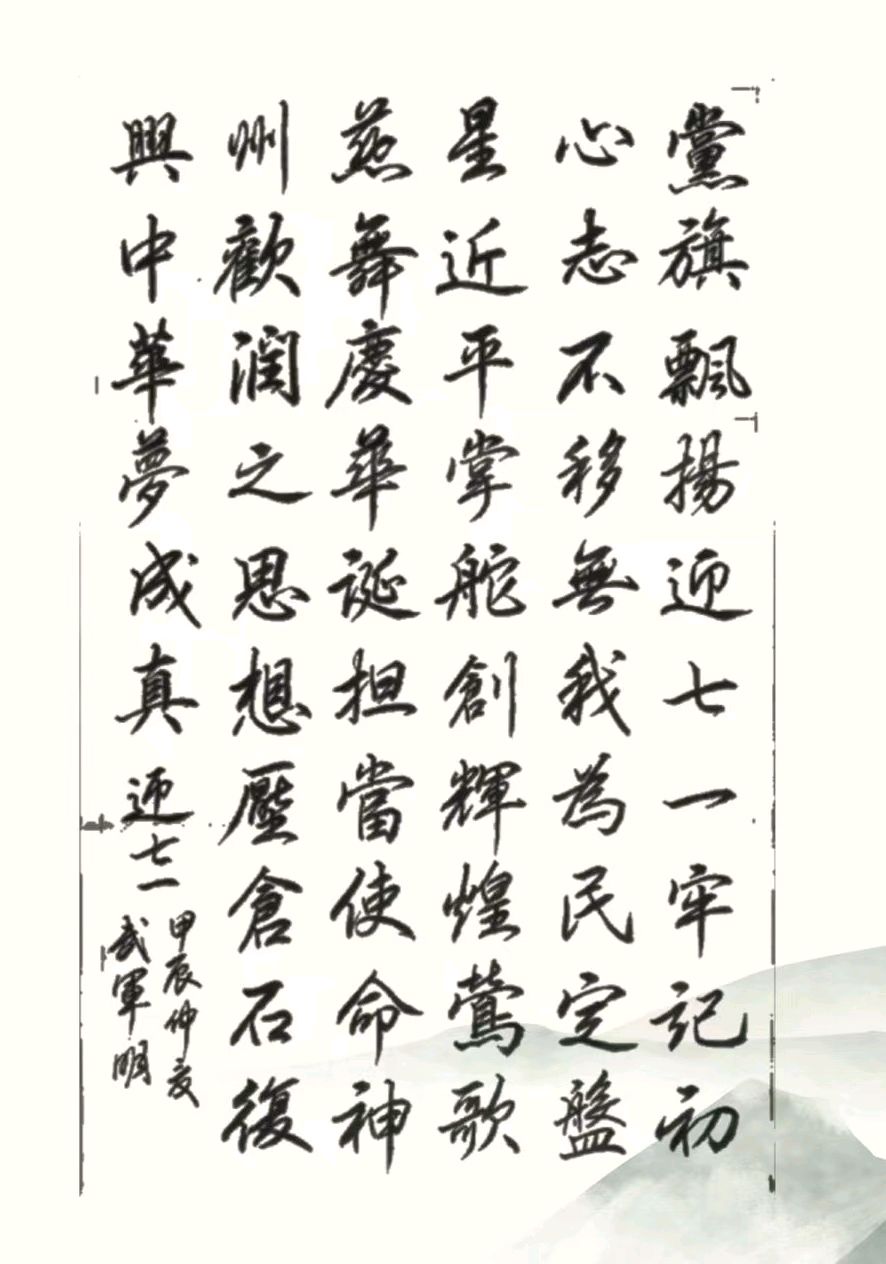 黨旗飄揚迎七一牢記初
心志不移無我為民定盤
星近平掌舵創輝煌鶯歌
燕舞慶華誕担當使命神
州歡潤之思想壓倉石復
興中華夢成真迎七一
甲辰仲夏
武軍明